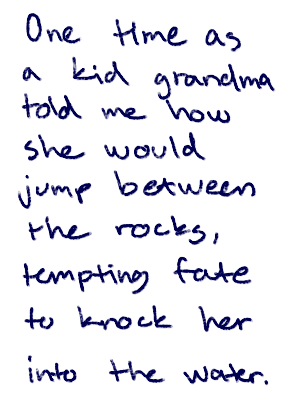 One time as
a kid grandma
told me how
she would
jump between
the rocks,
tempting fate
to knock her
into the water.